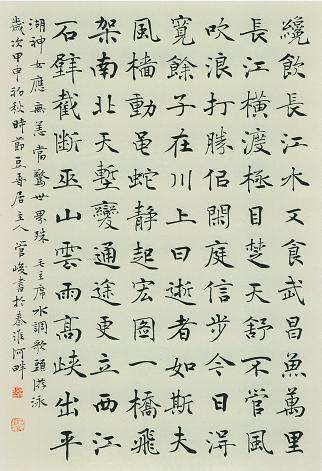 纔飲長江水又食武昌魚萬里
長江橫渡極目楚天舒不管風
吹浪打勝佀閑庭信步今日淂
寬餘子在川上曰逝者如斯夫
風檣動龜蛇靜起宏圖一橋飛
架南北天塹變通途更立西江
石壁截斷巫山雲雨高峽出平
湖神女應無恙當驚世界殊 毛主席水調歌頭游泳
歲次甲申初秋時節豆香居主人管峻書於秦淮河畔